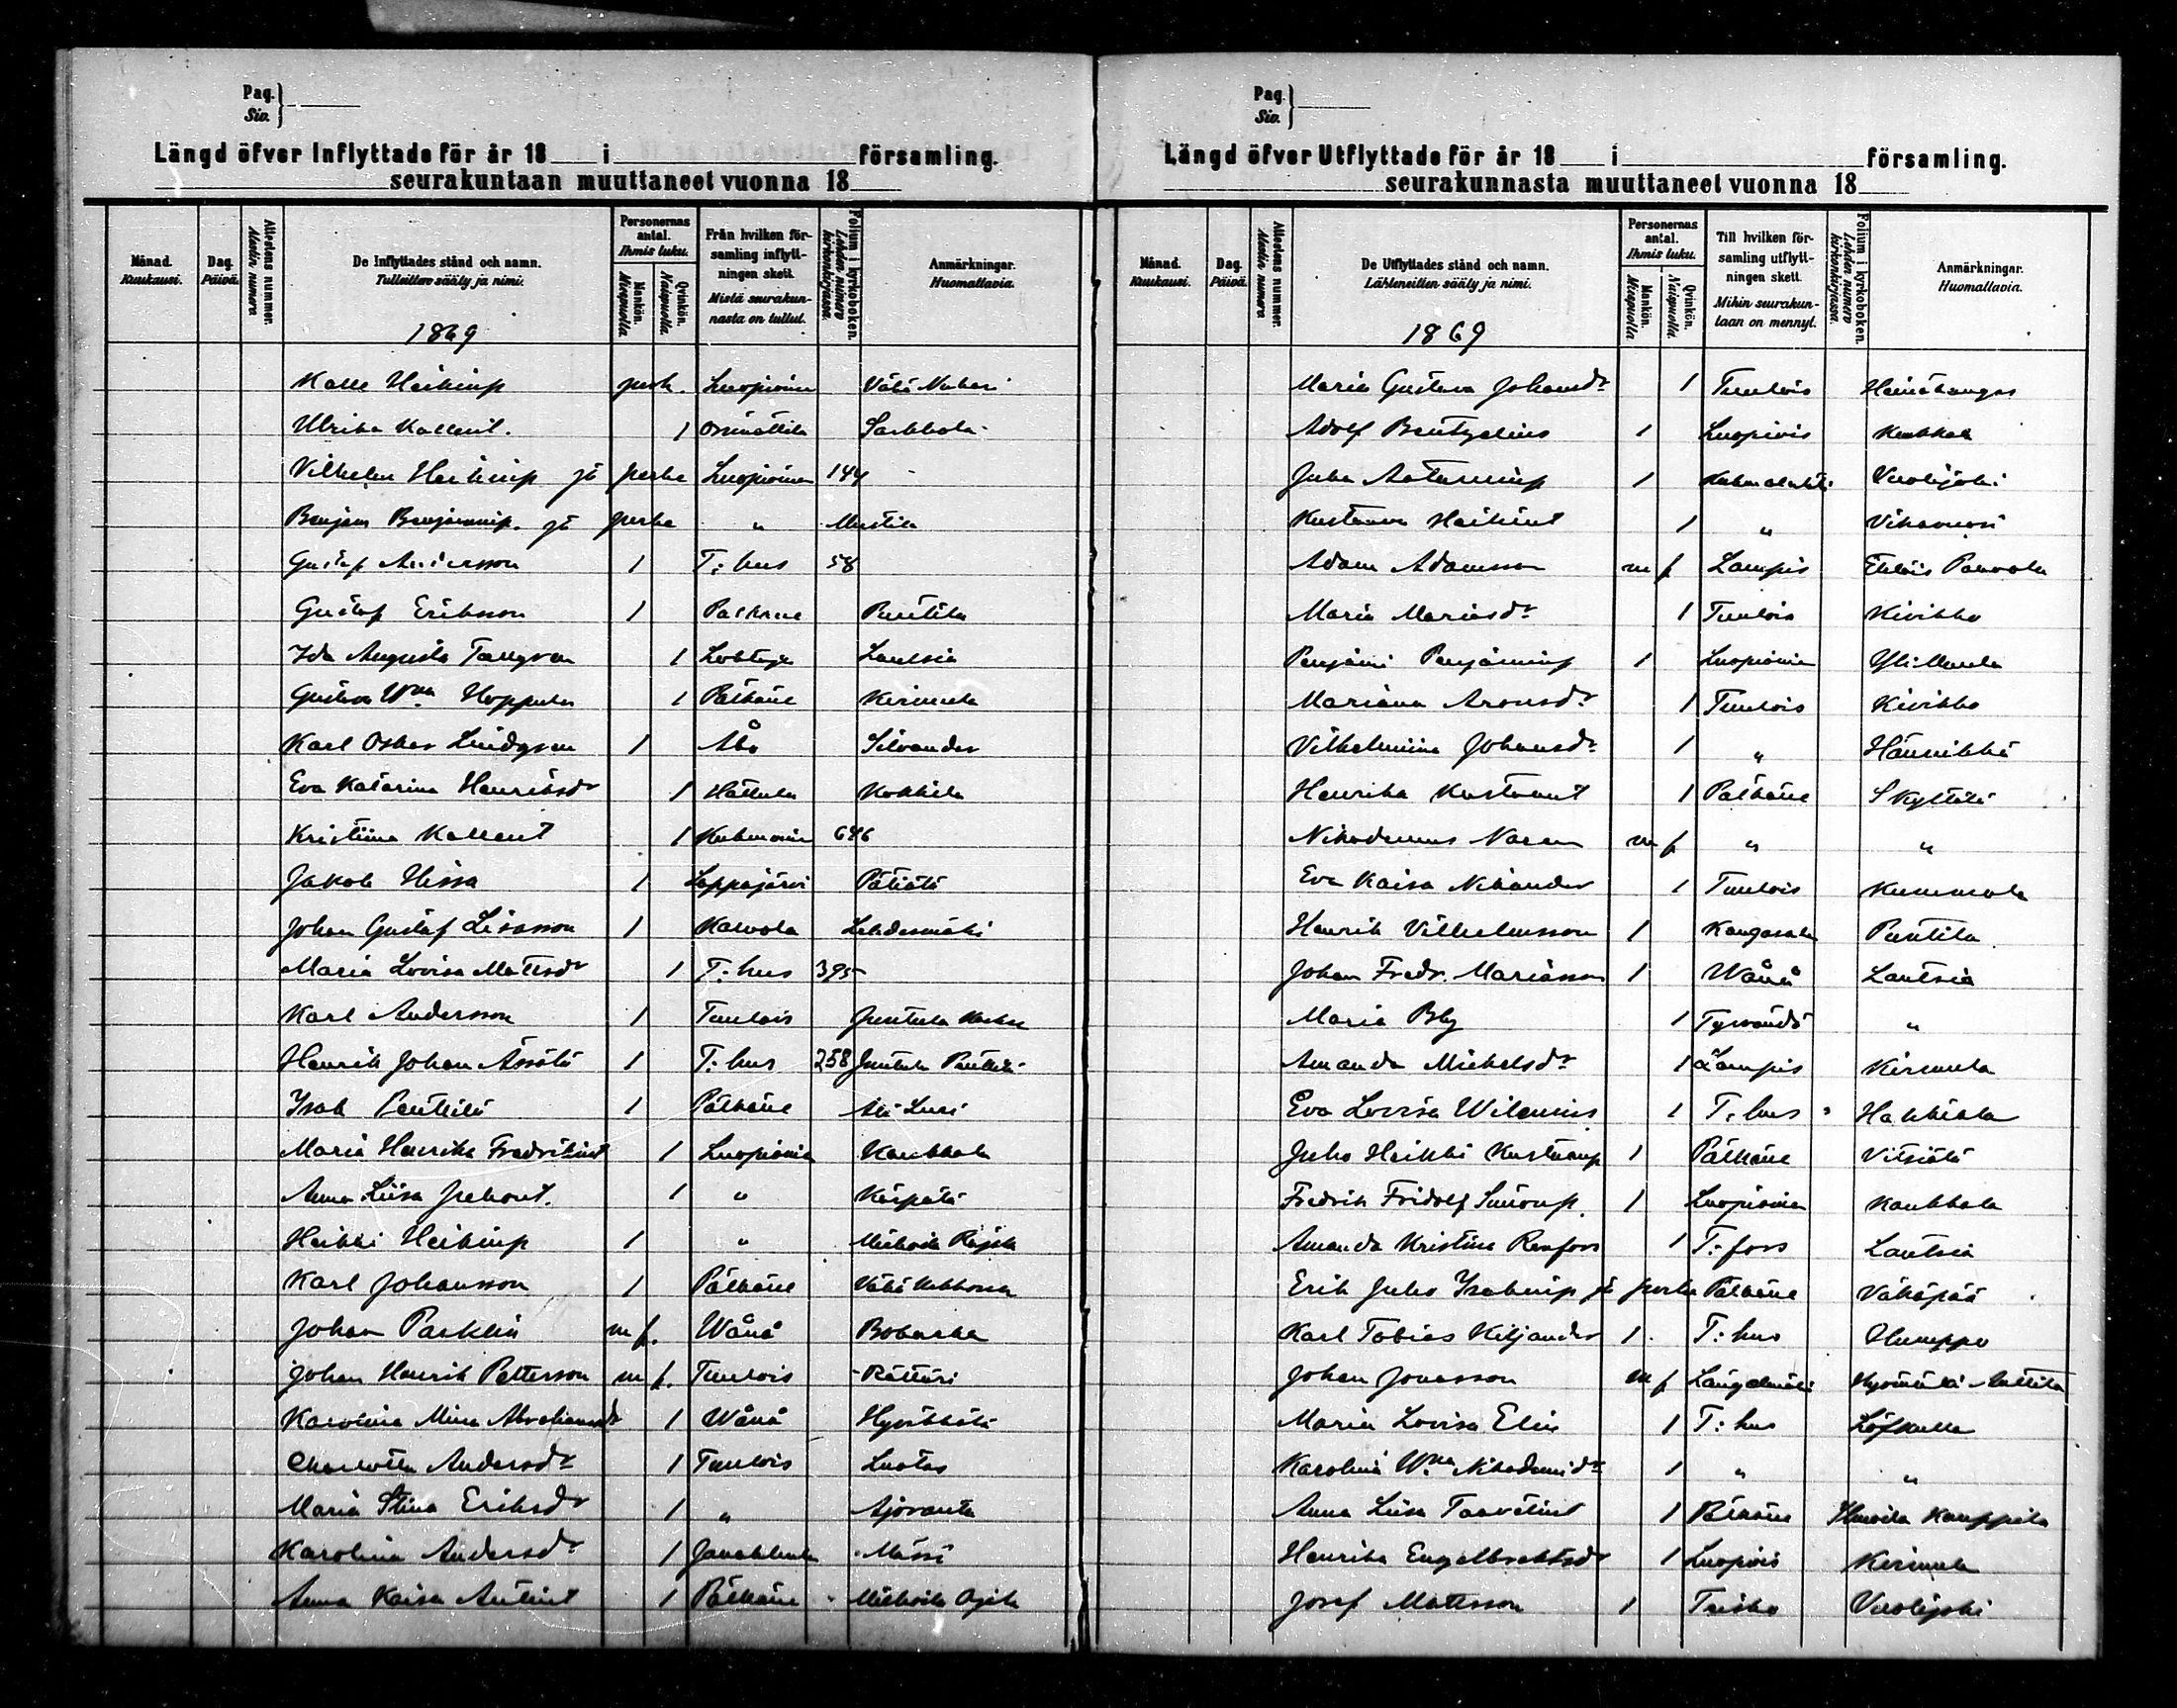 Pag.
Siv.
Längd öfver Inflyttade för år 18 i församling.
seurakuntaan muuttaneet vuonna 18
Månad. Kuukausi.
Dag. Päivä.
Attestens nummer. Alestin numero
De Inflyttades stånd och namn.
Tulleitten sääty ja nimi.
Personernas antal.
Ihmis luku.
Mankön. Miespuolia
Qvinkön. Naispuolia.
Från hvilken församling inflyttningen skett.
Mistä seurakunnasta on tullut.
Folium i kyrkoboken. Lehden numero kirkonkirjassa.
Anmärkningar.
Huomattavia.
1869
Kalle Heikinp perh. Luopioinen Vähä
Ulrika Kallent. 1 Orimattila Sarkkola
Vilhelm Heikinp ja perhe Luopioinen 144
Benjam Benjaminip. ja perhe " Mustila
Gustaf Andersson 1 T:hus 58
Gustaf Eriksson 1 Pälkäne Penttilä
Ida Augusta Tallgren 1 Lautsia
Gustava Wma Hoppula 1 Pälkäne Kirmula
Karl Oskar Lindgren 1 Åbo Silvander
Eva Katarina Henriksdr 1 Hattula Kokkila
Kristiina Kallent 1 Kuhmoinen 646
Jakob Hissa 1 Lappajärvi Pätiälä
Johan Gustaf Lisasson 1 Kalvola Lehdesmäki
Maria Lovisa Mattsdr 1 T:hus 395
Karl Andersson 1 Tuulois Juntula
Henrik Johan Ässälä 1 T:hus 258 Juntula Penttilä
Isak Penttilä 1 Pälkäne Ali
Maria Henrika Fredrikint 1 Luopioinen Kaukkala
Anna Liisa Juhont. 1 " Kärpälä
Heikki Heikinp 1 "
Karl Johansson 1 Pälkäne Vähä
Johan Parklin m f. Wånå
Johan Henrik Petterson m f. Tuulois Rättäri
Karolina Mina Abrahamsdr 1 Wånå
Charlotta Andersdr 1 Tuulois Luotas
Maria Stina Eriksdr 1 " Ajoranta
Karolina Andersdr 1 Janakkala Mässi
Anna Kaisa Antint 1 Pälkäne
Pag.
Siv.
Längd öfver Utflyttade för år 18 i församling.
seurakunnasta muuttaneet vuonna 18
Månad. Kuukausi.
Dag. Päivä.
Attestens nummer. Alestin numero
De Utflyttades stånd och namn.
Lähteneitten sääty ja nimi.
Personernas antal.
Ihmis luku.
Mankön. Miespuolia
Qvinkön. Naispuolia.
Till hvilken församling utflyttningen skett.
Mihin seurakuntaan on mennyt.
Folium i kyrkoboken. Lehden numero kirkonkirjassa.
Anmärkningar.
Huomattavia.
1869
Maria Gustava Johansdr 1 Tuulois Heinäkangas
Adolf Bentzelius 1 Luopiois
Juha Aataminp 1 Kuhmalahti Vuolijoki
Kustaava Heikint 1 "
Adam Adamsson m f Lampis
Maria Mariasdr 1 Tuulois Kivikko
Penjami Penjaminp 1 Luopioinen
Mariana Aronsdr 1 Tuulois Kivikko
Vilhelmiina Johansdr 1 " Hännikkä
Henrika Kustaant 1 Pälkäne S Kyttälä
Nikodemus Noren m f " "
Eva Kaisa Nikander 1 Tuulois Kummola
Henrik Vilhelmsson 1 Kangasala Penttilä
Johan Fredr. Mariasson 1 Wånå Lautsia
Maria Bly 1 Tyrvändö "
Amanda Michelsdr 1 Lampis Kirmula
Eva Lovisa Wilenius 1 T:hus Hakkiala
Juho Heikki Kustaanp 1 Pälkäne Vitsiälä
Fredrik Fridolf 1 Luopioinen Kaukkala
Amanda Kristina Renfors 1 T:fors Lautsia
Erik Juho Isakinp ja perhe Pälkäne Vähäpää
Karl Tobias Kiljander 1 T:hus Humppo
Johan Jonasson m f Längelmäki
Maria Lovisa Elin 1 T:hus Löfkulla
Karolina Wma Nikodemidr 1 " "
Anna Liisa Taavetint 1 Pälkäne Ilmoila Kauppila
Henrika Engelbrektsdr 1 Luopiois Kirmula
Josef Mattsson 1 Teisko Vuolijoki